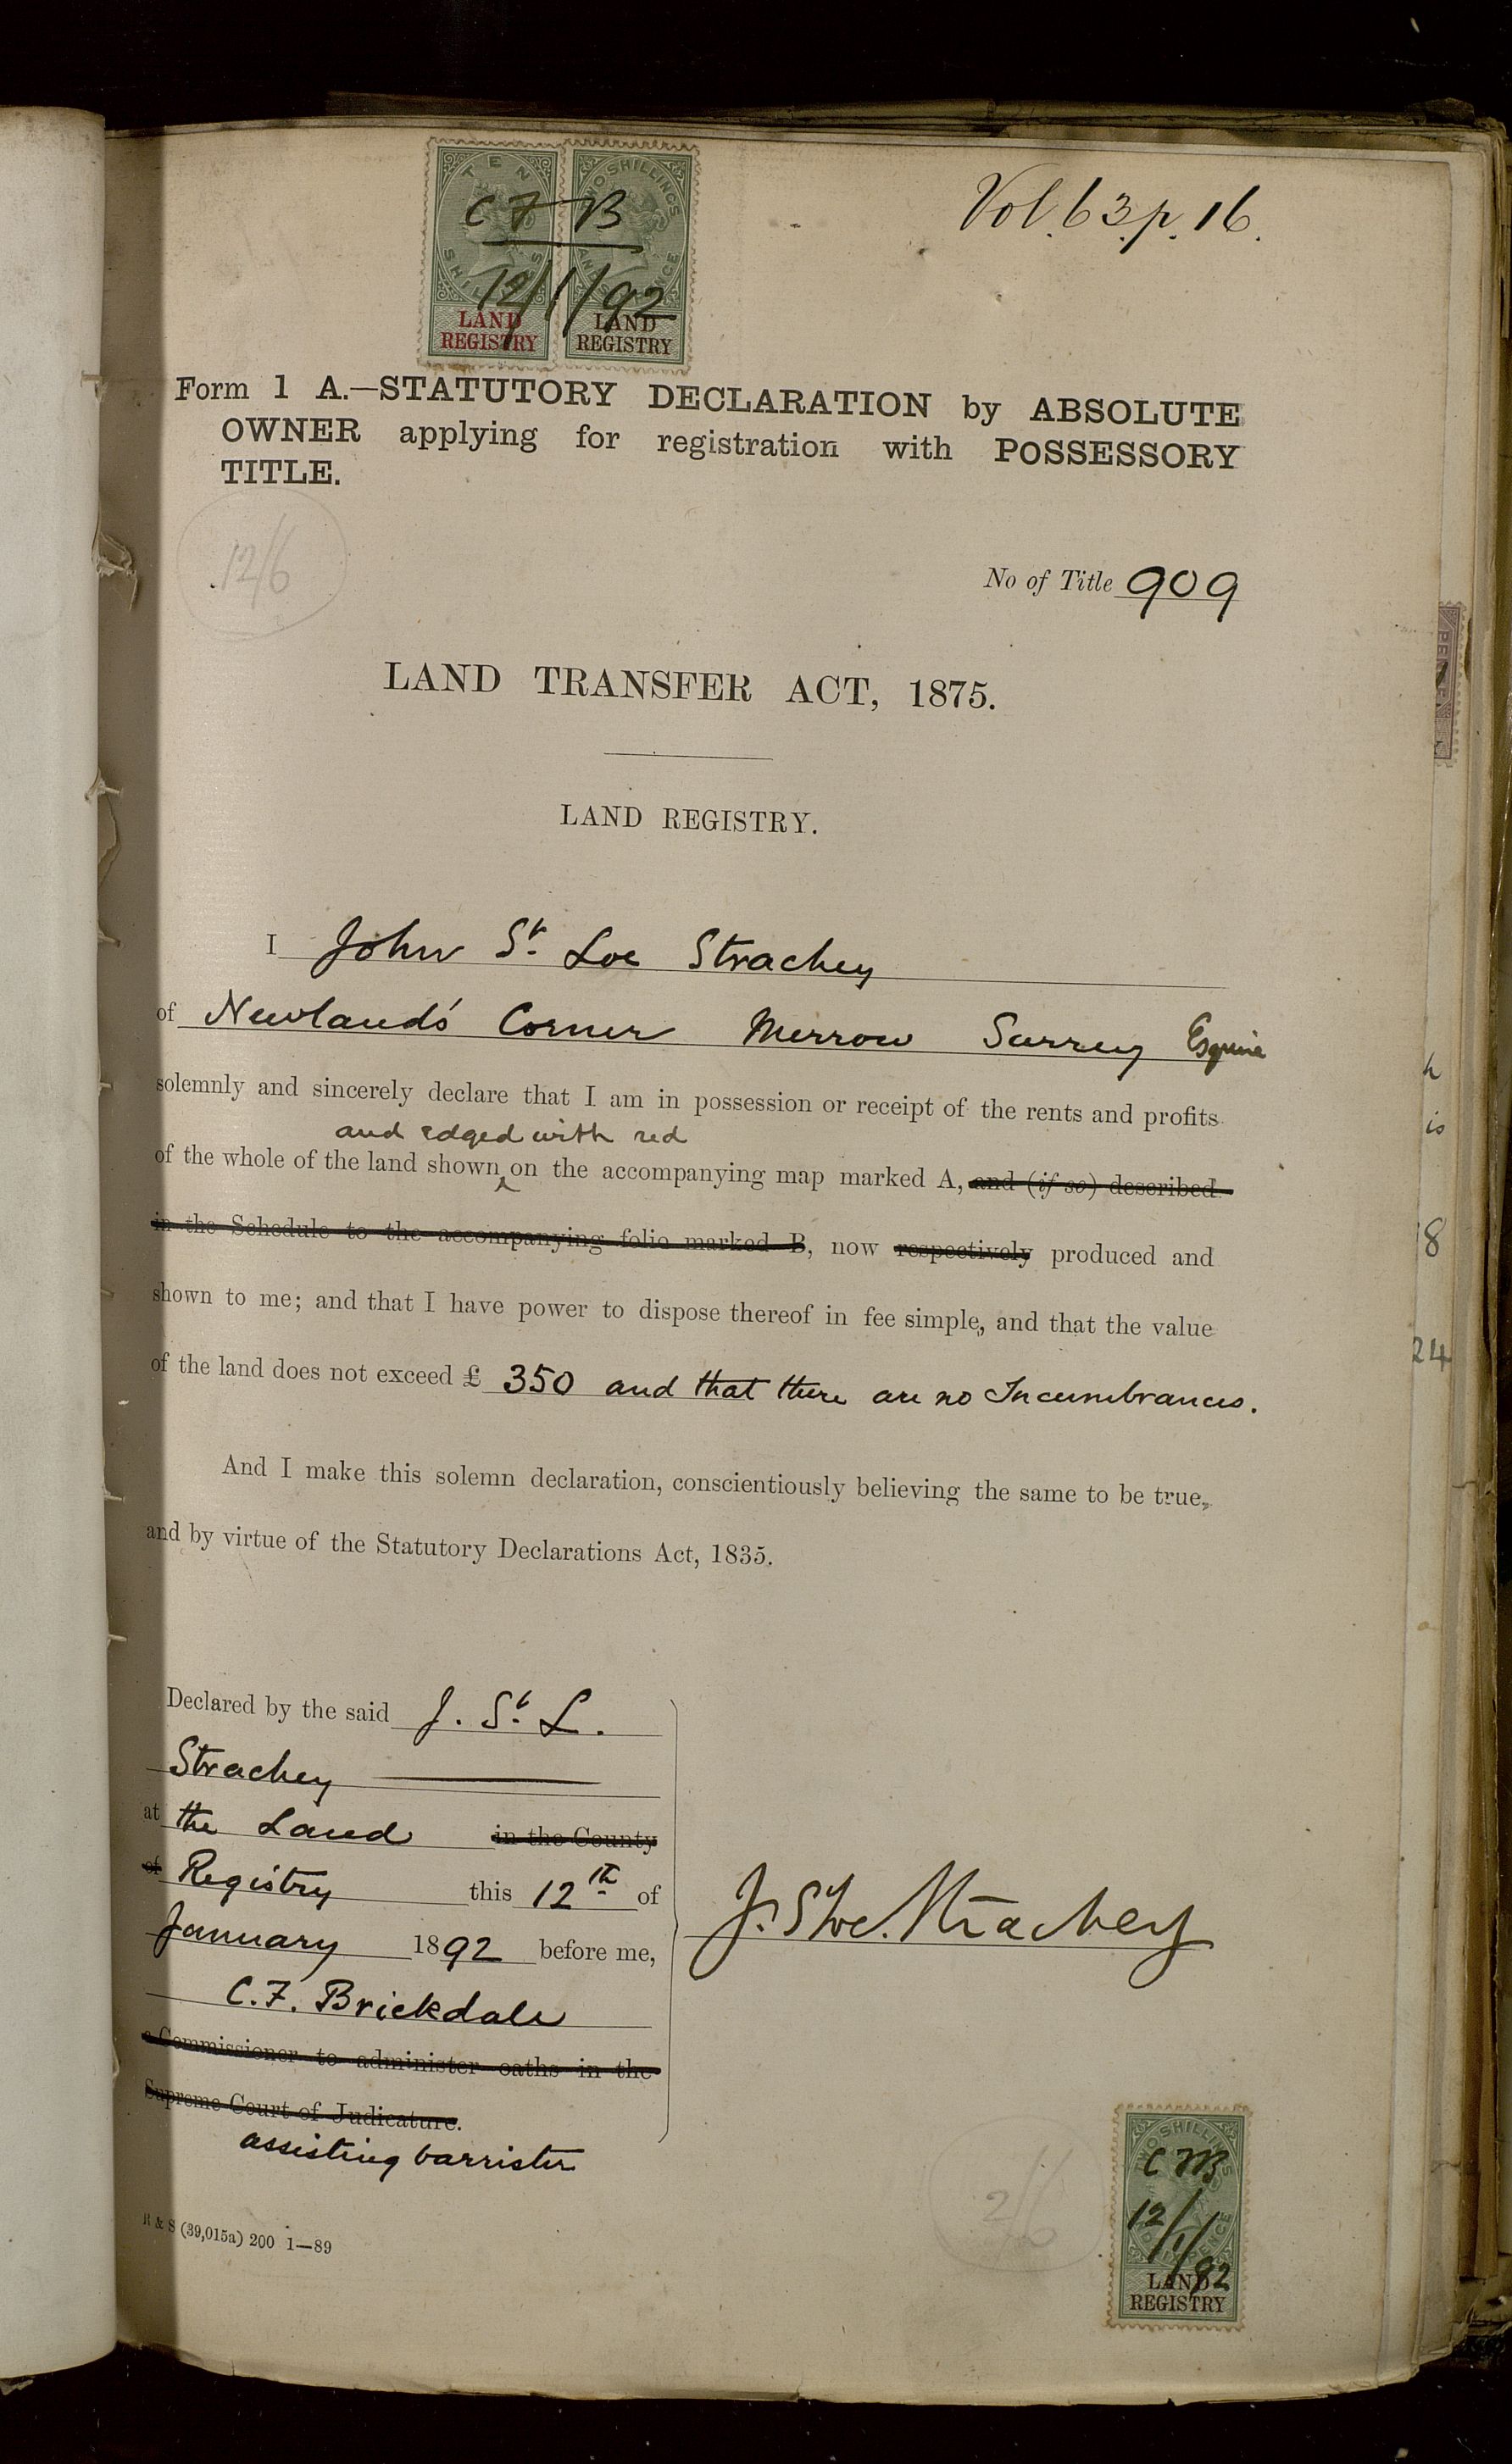 Vol. 63 p. 16.
TEN SHILLINGS
TWO SHILLINGS AND SIXPENCE
C F B
12/1/92
LAND REGISTRY
LAND REGISTRY
Form 1 A.—STATUTORY DECLARATION by ABSOLUTE
OWNER applying for registration with POSSESSORY
TITLE.
12/6
No of Title 909
PEN
LAND TRANSFER ACT, 1875.
LAND REGISTRY.
I John St. Loe Strachey
of Newland's Corner Merrow Surrey Esquire
solemnly and sincerely declare that I am in possession or receipt of the rents and profits
and edged with red
of the whole of the land shown ‸ on the accompanying map marked A, and (if so) described
in the Schedule to the accompanying folio marked B, now respectively produced and
shown to me; and that I have power to dispose thereof in fee simple, and that the value
of the land does not exceed £ 350 and that there are no Incumbrances.
And I make this solemn declaration, conscientiously believing the same to be true,
and by virtue of the Statutory Declarations Act, 1835.
h
is
8
24
Declared by the said J. St. L.
Strachey
at the Land in the County
of Registry this 12th of
January 1892 before me,
C. F. Brickdale
a Commissioner to administer oaths in the
Supreme Court of Judicature.
assisting barrister
J. St Loe Strachey
2/6
TWO SHILLINGS AND SIXPENCE
C F B
12/1/92
LAND REGISTRY
R & S (39,015a) 200 1—89